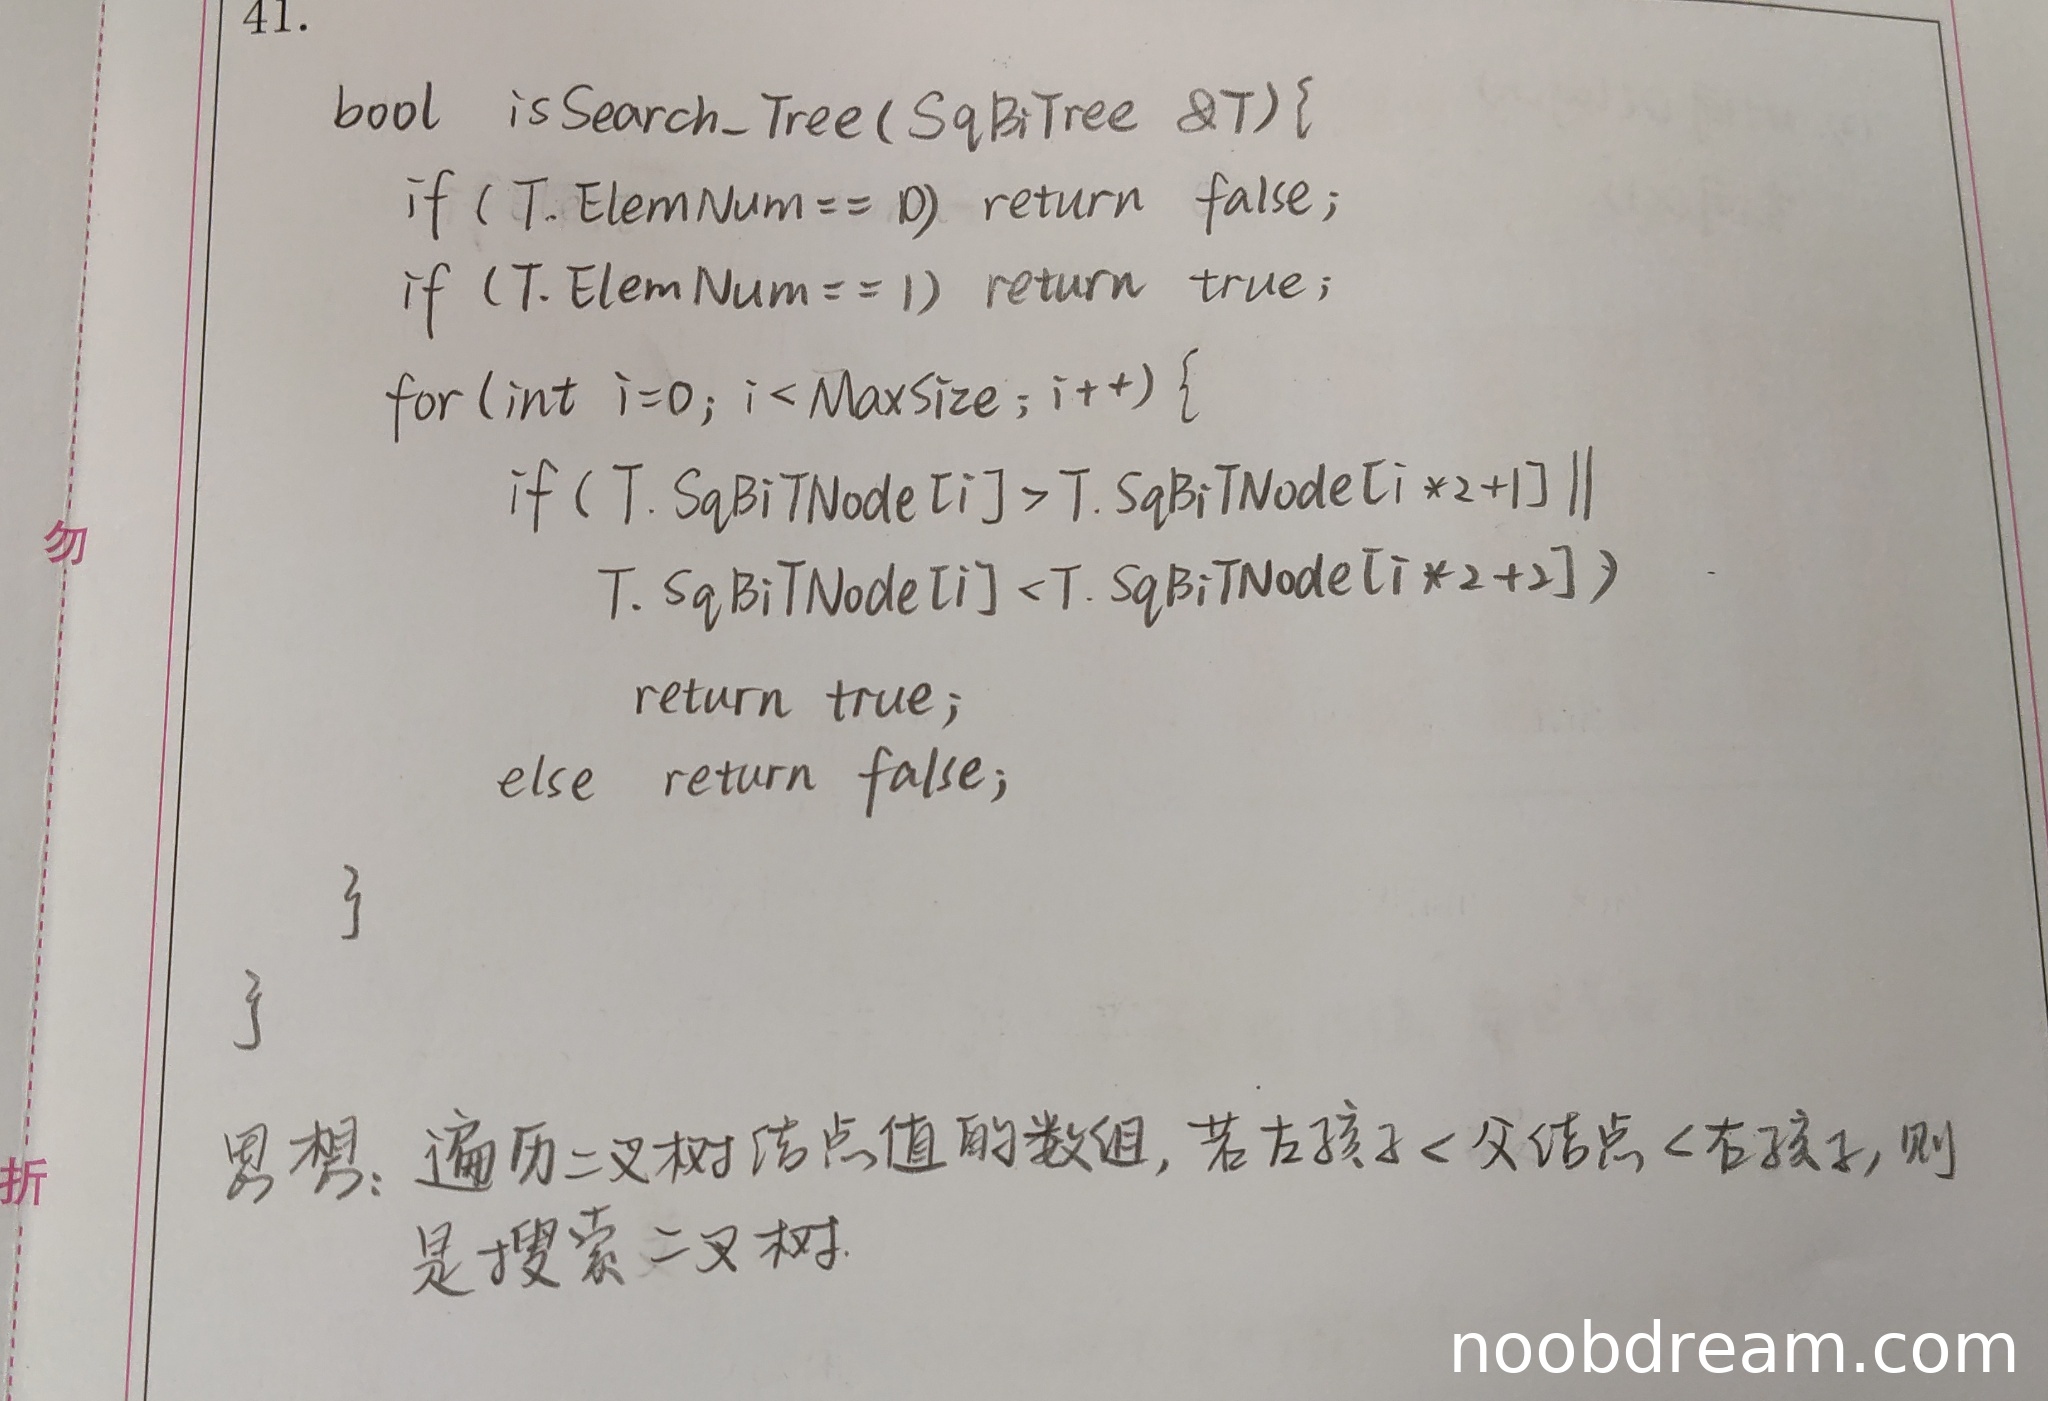 41.
bool isSearch_Tree(SqBiTree &T){
if (T.ElemNum==0) return false;
if (T.ElemNum==1) return true;
for(int i=0; i<MaxSize; i++){
if(T.SqBiTNode[i]>T.SqBiTNode[i*2+1]||
T.SqBiTNode[i]<T.SqBiTNode[i*2+2])
return true;
else return false;
}
}
思想：遍历二叉树结点值的数组，若左孩子<父结点<右孩子，则
是搜索二叉树.
勿
折
noobdream.com